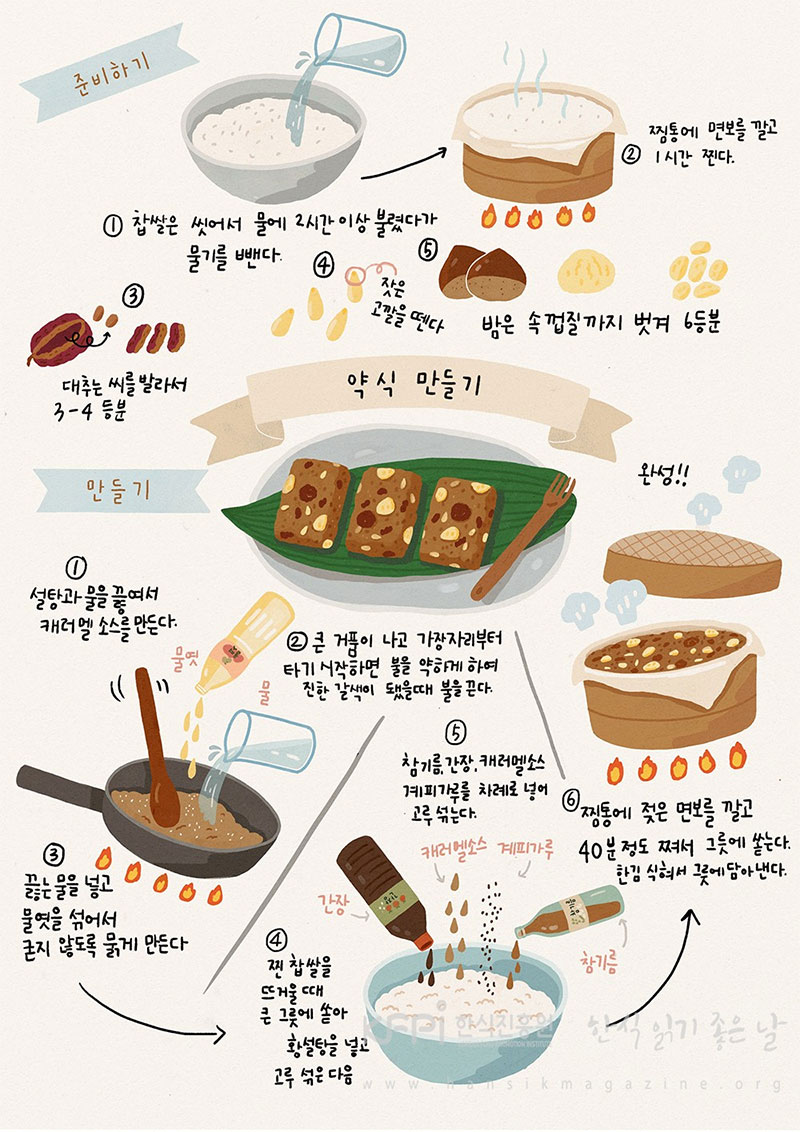 준비하기
① 찹쌀은 씻어서 물에 2시간 이상 불렸다가
물기를 뺀다.
② 찜통에 면보를 깔고
1시간 찐다.
③
대추는 씨를 발라서
3-4 등분
④ 잣은
고깔을 뗀다
⑤
밤은 속껍질까지 벗겨 6등분
약식 만들기
만들기
①
설탕과 물을 끓여서
캐러멜 소스를 만든다.
② 큰 거품이 나고 가장자리부터
타기 시작하면 불을 약하게 하여
진한 갈색이 됐을때 불을 끈다.
물엿
물
③
끓는 물을 넣고
물엿을 섞어서
굳지 않도록 묽게 만든다
④
찐 찹쌀을
뜨거울 때
큰 그릇에 쏟아
황설탕을 넣고
고루 섞은 다음
⑤
참기름, 간장, 캐러멜소스
계피가루를 차례로 넣어
고루 섞는다.
간장
캐러멜소스
계피가루
참기름
⑥ 찜통에 젖은 면보를 깔고
40분 정도 쪄서 그릇에 쏟는다.
한김 식혀서 그릇에 담아낸다.
완성!!
한식진흥원
한식 읽기 좋은 날
www.hansikmagazine.org